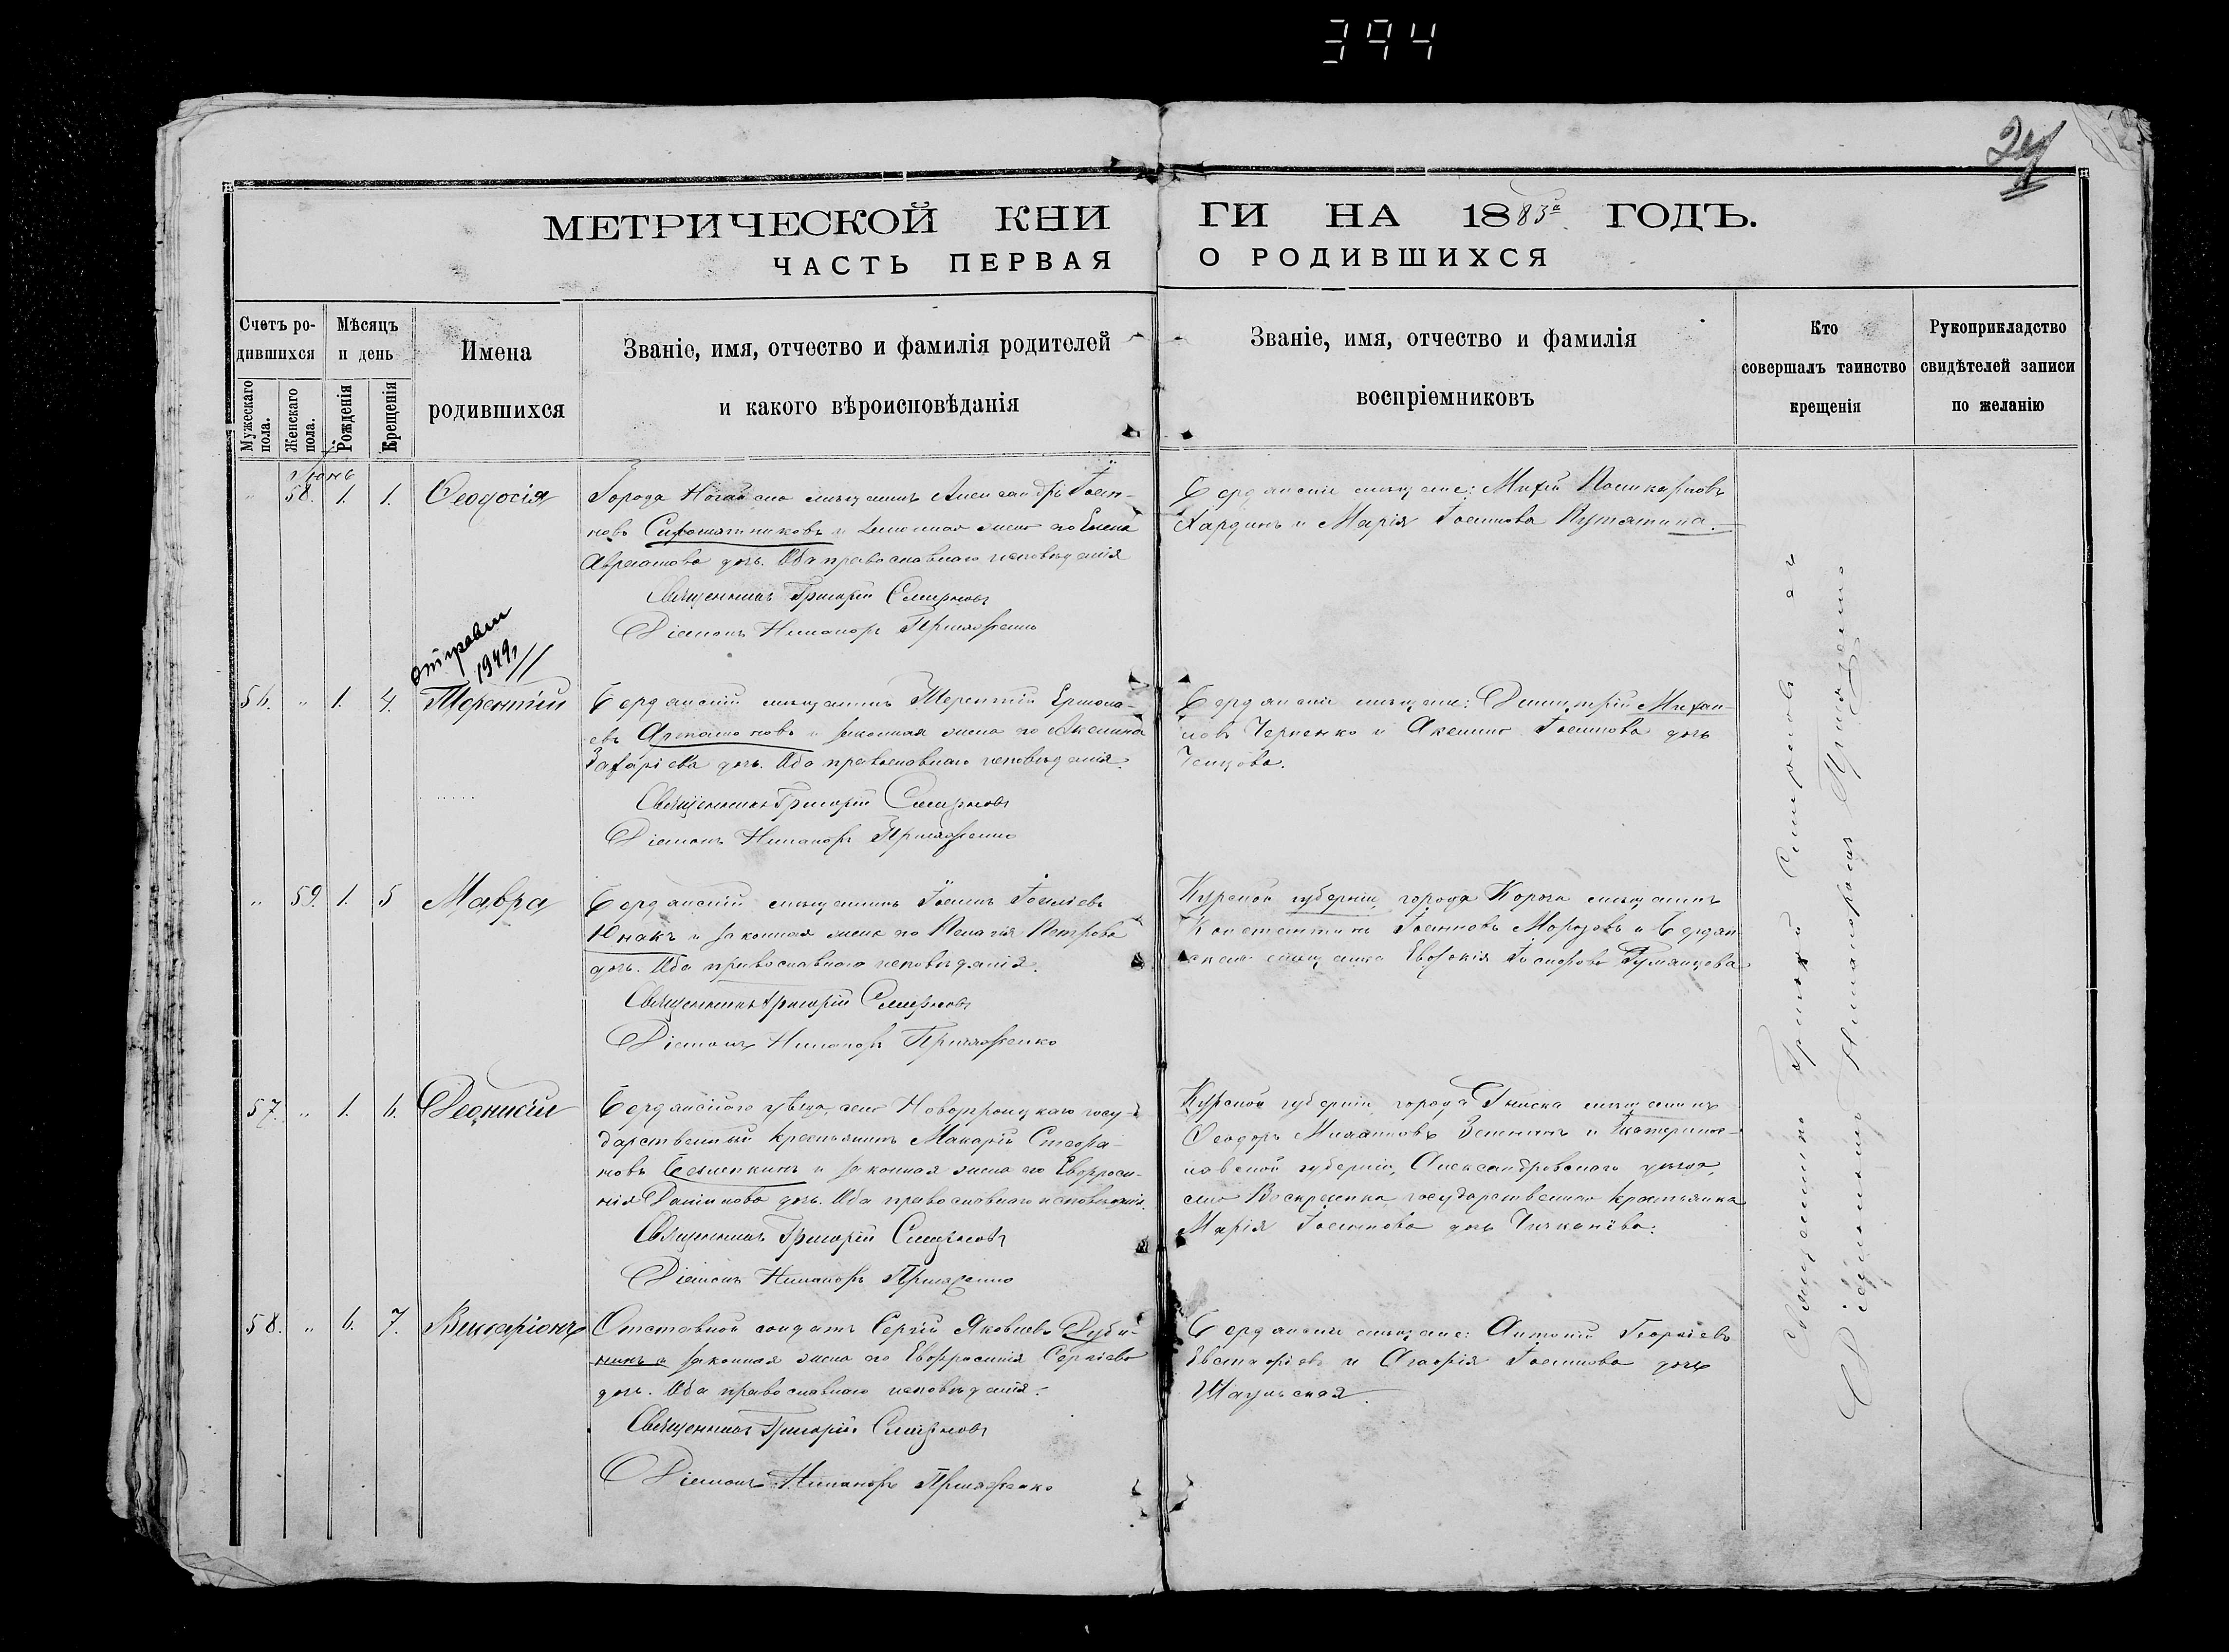 394
24
МЕТРИЧЕСКОЙ КНИ ГИ НА 1883й ГОДЪ.
ЧАСТЬ ПЕРВАЯ О РОДИВШИХСЯ
Счетъ ро-
дившихся
Мужескаго пола.
Женскаго пола.
Мѣсяцъ
и день
Рожденія
Крещенія
Имена
родившихся
Званіе, имя, отчество и фамилія родителей
и какого вѣроисповѣданія
Званіе, имя, отчество и фамилія
воспріемниковъ
Кто
совершалъ таинство
крещенія
Рукоприкладство
свидѣтелей записи
по желанію
Іюнь
" 58. 1. 1. Ѳеодосія
Города Ногайска мѣщанинъ Александръ Іоан-
новъ и законная жена его Елена
дочь. Оба православнаго исповѣданія
Священникъ Григорій Смирновъ
Діаконъ Никаноръ Пригяженко
Бердянскіе мѣщане: Поликарповъ
и Марія Іоаннова Путятина.
1949
56. " 1. 4. Терентій
Бердянскій мѣщанинъ Терентій Ермола-
евъ Артамоновъ и законная жена его Акелина
Захаріева дочь. Оба православнаго исповѣданія.
Священникъ Григорій Смирновъ
Діаконъ Никаноръ Пригяженко
Бердянскіе мѣщане: Димитрій Михаи-
ловъ Черненко и Акелина Іоаннова дочь
" 59. 1. 5 Мавра
Бердянскій мѣщанинъ Іоаннъ
Юнакъ и законная жена его Пелагія Петрова
дочь. Оба православнаго исповѣданія.
Священникъ Григорій Смирновъ
Діаконъ Никаноръ Пригяженко
Курской губерніи, города Короча мѣщанинъ
Константинъ Іоанновъ Морозовъ и Бердян-
ская мѣщанка Евдокія Румянцова
57. " 1. 6. Діонисій
Бердянскаго уѣзда, села Новотроицкаго госу-
дарственный крестьянинъ Макарій Стефа-
новъ и законная жена его Евфроси-
нія Даніилова дочь. Оба православнаго исповѣданія.
Священникъ Григорій Смирновъ
Діаконъ Никаноръ Пригяженко
Курской губерніи, города мѣщанинъ
Ѳеодоръ и Екатерино-
славской губерніи, Александровскаго уѣзда,
села Воскресенка, государственная крестьянка
Марія Іоаннова дочь
58. " 6. 7. Виссаріонъ
Отставной солдатъ Сергій Яковлевъ Дуби-
нинъ и законная жена его Евфросинія Сергіева
дочь. Оба православнаго исповѣданія.
Священникъ Григорій Смирновъ
Діаконъ Никаноръ Пригяженко
Бердянскіе мѣщане: Антоній Георгіевъ
Евстафіевъ и Агафія Іоаннова дочь
Священникъ Григорій Смирновъ съ
Діакономъ Никаноромъ Пригяженко